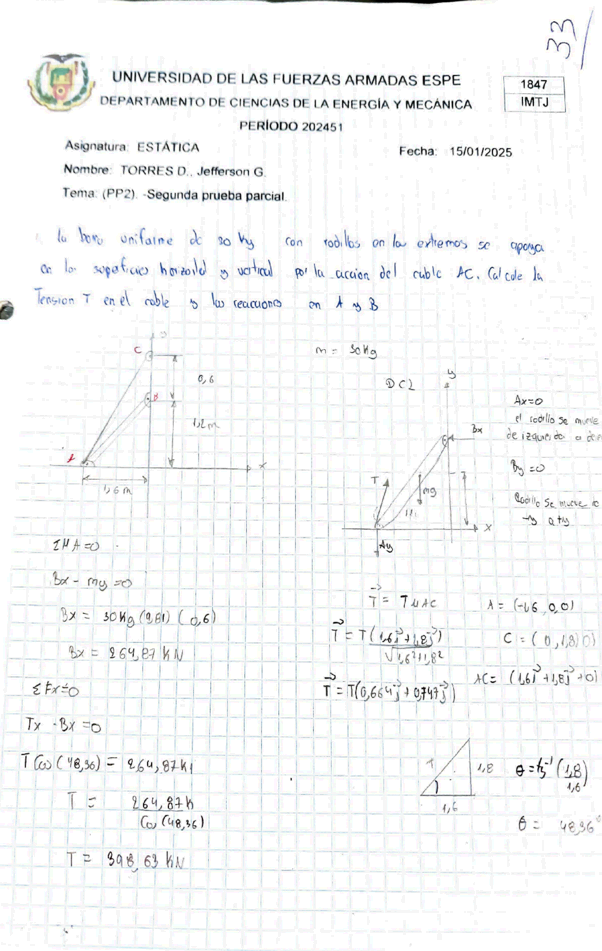 33/
UNIVERSIDAD DE LAS FUERZAS ARMADAS ESPE
DEPARTAMENTO DE CIENCIAS DE LA ENERGÍA Y MECÁNICA
PERÍODO 202451
1847
IMTJ
Asignatura: ESTÁTICA
Fecha: 15/01/2025
Nombre: TORRES D., Jefferson G.
Tema: (PP2). -Segunda prueba parcial.
la barra uniforme de 30 Kg con rodillos en los extremos se apoya
en las superficies horizontal y vertical por la accion del cable AC. Calcule la
Tension T en el cable y las reacciones en A y B
m = 30Kg
C
0,6
B
1,2m
A
x
1,6m
DCL
y
Bx
T
mg
x
Ay
Ax=0
el rodillo se mueve
de izquierda a
By=0
Rodillo se mueve
-y a +y
ΣMA=0
Bx - mg =0
Bx = 30Kg (9,81) (0,6)
Bx = 264,87 KN
ΣFx=0
Tx -Bx =0
T Cos (48,36) = 264,87KN
T = 264,87K
Cos (48,36)
T = 398,63 KN
T = T μAC
A = (-1,6, 0,0)
T = T (1,6i + 1,8j)
√1,6²+1,8²
C = (0, 1,8, 0)
T = T(0,664i + 0,747j)
AC = (1,6i + 1,8j + 0)
T
1,8
1,6
θ = tg⁻¹ (1,8
1,6)
θ = 48,36°